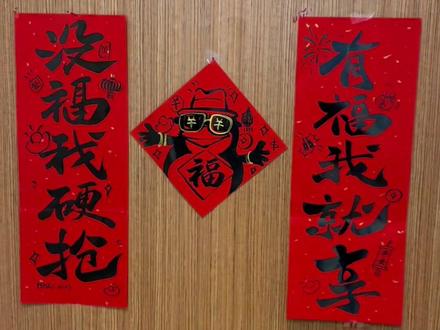 有福我就享
没福我硬抢
福